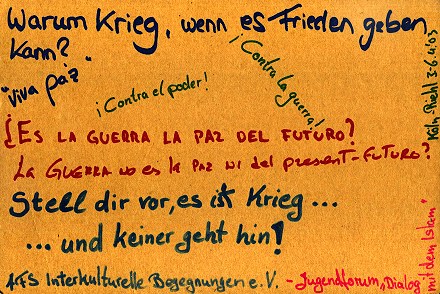 Warum Krieg, wenn es Frieden geben
kann?
"Viva paz"
¡Contra el poder!
¡Contra la guerra!
¿ES LA GUERRA LA PAZ DEL FUTURO?
LA GUERRA no es la PAZ ni del present-FUTURO?
Stell dir vor, es ist Krieg ...
... und keiner geht hin!
AFS Interkulturelle Begegnungen e.V. - Jugendforum "Dialog
mit dem Islam"
Köln-Riehl 3-6.4.'03